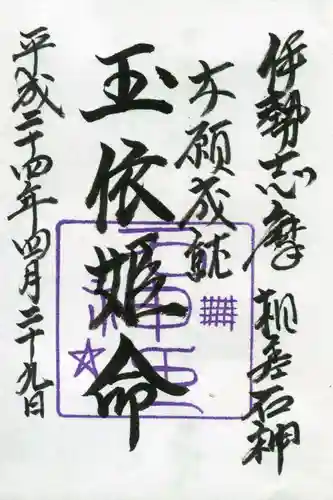 伊勢志摩 相差石神
大願成就
玉依姫命
平成二十四年四月二十九日